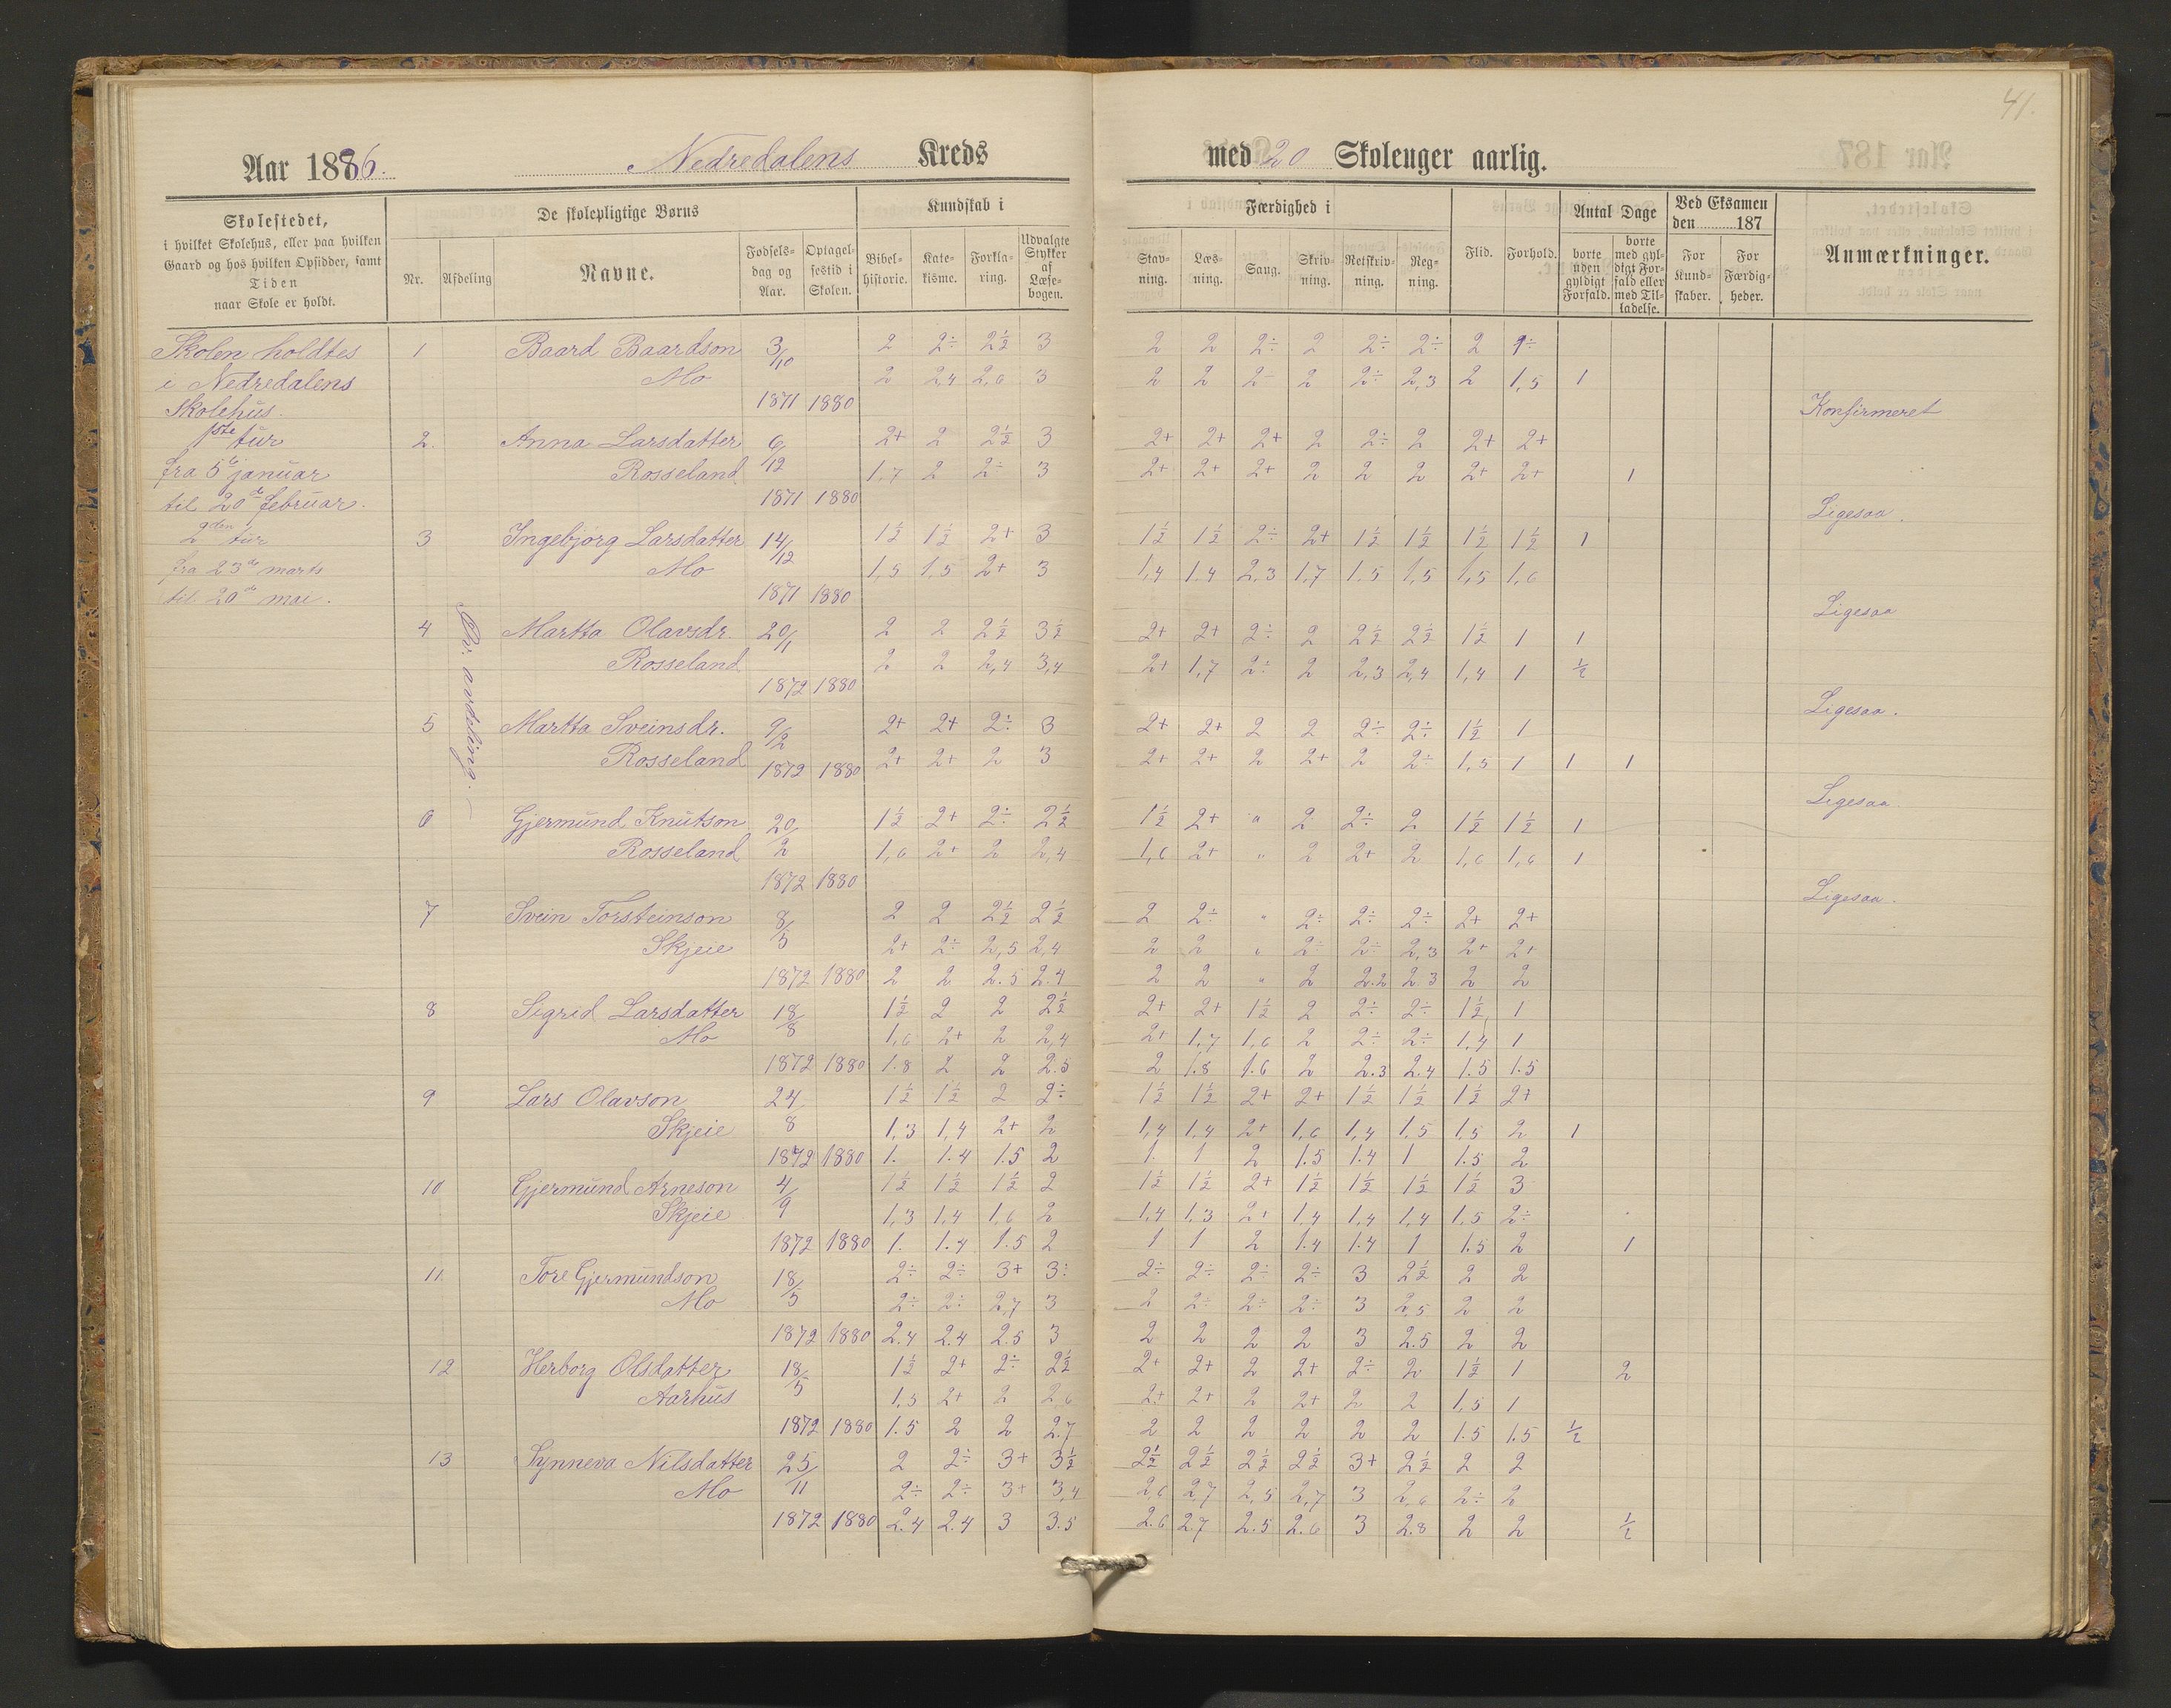 41.
Aar 1886. Nedredalens Kreds med 20 Skoleuger aarlig.
Skolestedet,
i hvilket Skolehus, eller paa hvilken
Gaard og hos hvilken Opsidder, samt
Tiden
naar Skole er holdt.
De skolepligtige Børns
Nr. Afdeling Navne. Fødsels-dag og Aar. Optagel-sestid i Skolen.
Kundskab i
Bibel-historie. Kate-kisme. Forkla-ring. Udvalgte Stykker af Læse-bogen.
Færdighed i
Stav-ning. Læs-ning. Sang. Skriv-ning. Retskriv-ning. Reg-ning.
Flid. Forhold.
Antal Dage
borte uden gyldigt Forfald. borte med gyl-digt For-fald eller med Til-ladelse.
Ved Eksamen den 187
For Kund-skaber. For Færdig-heder.
Anmærkninger.
Skolen holdtes
i Nedredalens
Skolehus.
1ste tur
fra 5te januar
til 20de februar.
2den tur
fra 23de marts
til 20de mai.
Øv. avdeling.
1 Baard Baardson 3/10 2 2÷ 2½ 3 2 2 2÷ 2 2÷ 2÷ 2
Mo 2 2,4 2,6 3 2 2 2÷ 2 2÷ 2,3 2 1,5 1
1871 1880 Konfirmeret
2. Anna Larsdatter 6/12 2+ 2 2½ 3 2+ 2+ 2+ 2 2÷ 2 2+ 2+
Rosseland 1,7 2 2÷ 3 2+ 2+ 2+ 2 2 2 2+ 2+ 1
1871 1880 Ligesaa.
3 Ingebjorg Larsdatter 14/12 1½ 1½ 2+ 3 1½ 1½ 2÷ 2+ 1½ 1½ 1½ 1½ 1
Mo 1,5 1,5 2+ 3 1,4 1.4 2,3 1,7 1.5 1,5 1,5 1,6
1871 1880 Ligesaa
4 Martha Olavsdr. 20/1 2 2 2½ 3½ 2+ 2+ 2÷ 2 2½ 2½ 1½ 1 1
Rosseland 2 2 2,4 3,4 2+ 1,7 2÷ 2 2,3 2,4 1,4 1 ½
1872 1880 Ligesaa.
5 Martha Sveinsdr. 9/2 2+ 2+ 2÷ 3 2+ 2+ 2 2 2÷ 2÷ 1½ 1
Rosseland 2+ 2+ 2 3 2+ 2+ 2 2+ 2 2÷ 1,5 1 1 1
1872 1880 Ligesaa
6 Gjermund Knutson 20/2 1½ 2+ 2÷ 2½ 1½ 2+ " 2 2÷ 2 1½ 1½ 1
Rosseland 1,6 2+ 2 2,4 1,6 2+ " 2 2+ 2 1,6 1,6 1
1872 1880 Ligesaa.
7 Svein Torsteinson 8/5 2 2 2½ 2½ 2 2÷ " 2÷ 2÷ 2÷ 2+ 2+
Skjeie 2+ 2÷ 2,5 2,4 2 2 " 2÷ 2÷ 2,3 2+ 2+
1872 1880 2 2 2.5 2.4 2 2 " 2 2.2 2.3 2 2
8 Sigrid Larsdatter 18/8 1½ 2 2 2½ 2+ 2+ 1½ 2 2÷ 2÷ 1½ 1
Mo 1,6 2+ 2 2,4 2+ 1,7 1,6 2 2÷ 2÷ 1.4 1
1872 1880 1.8 2 2 2.5 2 1.8 1.6 2 2.3 2.4 1.5 1.5
9 Lars Olavson 24/8 1½ 1½ 2 2÷ 1½ 1½ 2+ 2+ 1½ 1½ 1½ 2+
Skjeie 1,3 1,4 2+ 2 1,4 1.4 2+ 1,6 1,4 1.5 1,5 2 1
1872 1880 1. 1.4 1.5 2 1. 1 2 1.5 1.4 1 1.5 2
10 Gjermund Arneson 4/9 1½ 1½ 1½ 2 1½ 1½ 2+ 1½ 1½ 1½ 1½ 3
Skjeie 1,3 1,4 1,6 2 1,4 1,3 2+ 1,4 1,4 1,4 1,5 2÷
1872 1880 1. 1.4 1.5 2 1 1 2 1.4 1.4 1 1.5 2 1
11 Tore Gjermundson 18/5 2÷ 2÷ 3+ 3÷ 2÷ 2÷ 2÷ 2÷ 3 2½ 2 2
Mo 2÷ 2÷ 2,7 3 2 2÷ 2÷ 2÷ 3 2,5 2 2
1872 1880 2.4 2.4 2.5 3 2 2 2 2 3 2.5 2 2
12 Herborg Olsdatter 18/5 1½ 2+ 2÷ 2½ 2+ 2+ 2 2+ 2÷ 2 1½ 1 2
Aarhus 1,5 2+ 2 2,6 2+ 2+ 2 2+ 2 2 1,5 1
1872 1880 1.5 2 2 2.7 2 2 2 2 2 2 1.5 1.5 ½
13 Synneva Nilsdatter 25/11 2 2÷ 3+ 3½ 2½ 2½ 2½ 2½ 3+ 2½ 2 2
Mo 2÷ 2÷ 3+ 3,4 2,6 2,7 2,5 2,7 3 2,6 2÷ 2
1872 1880 2.4 2.4 3 3.5 2.6 2.7 2.5 2.6 3 2.8 2 2 ½